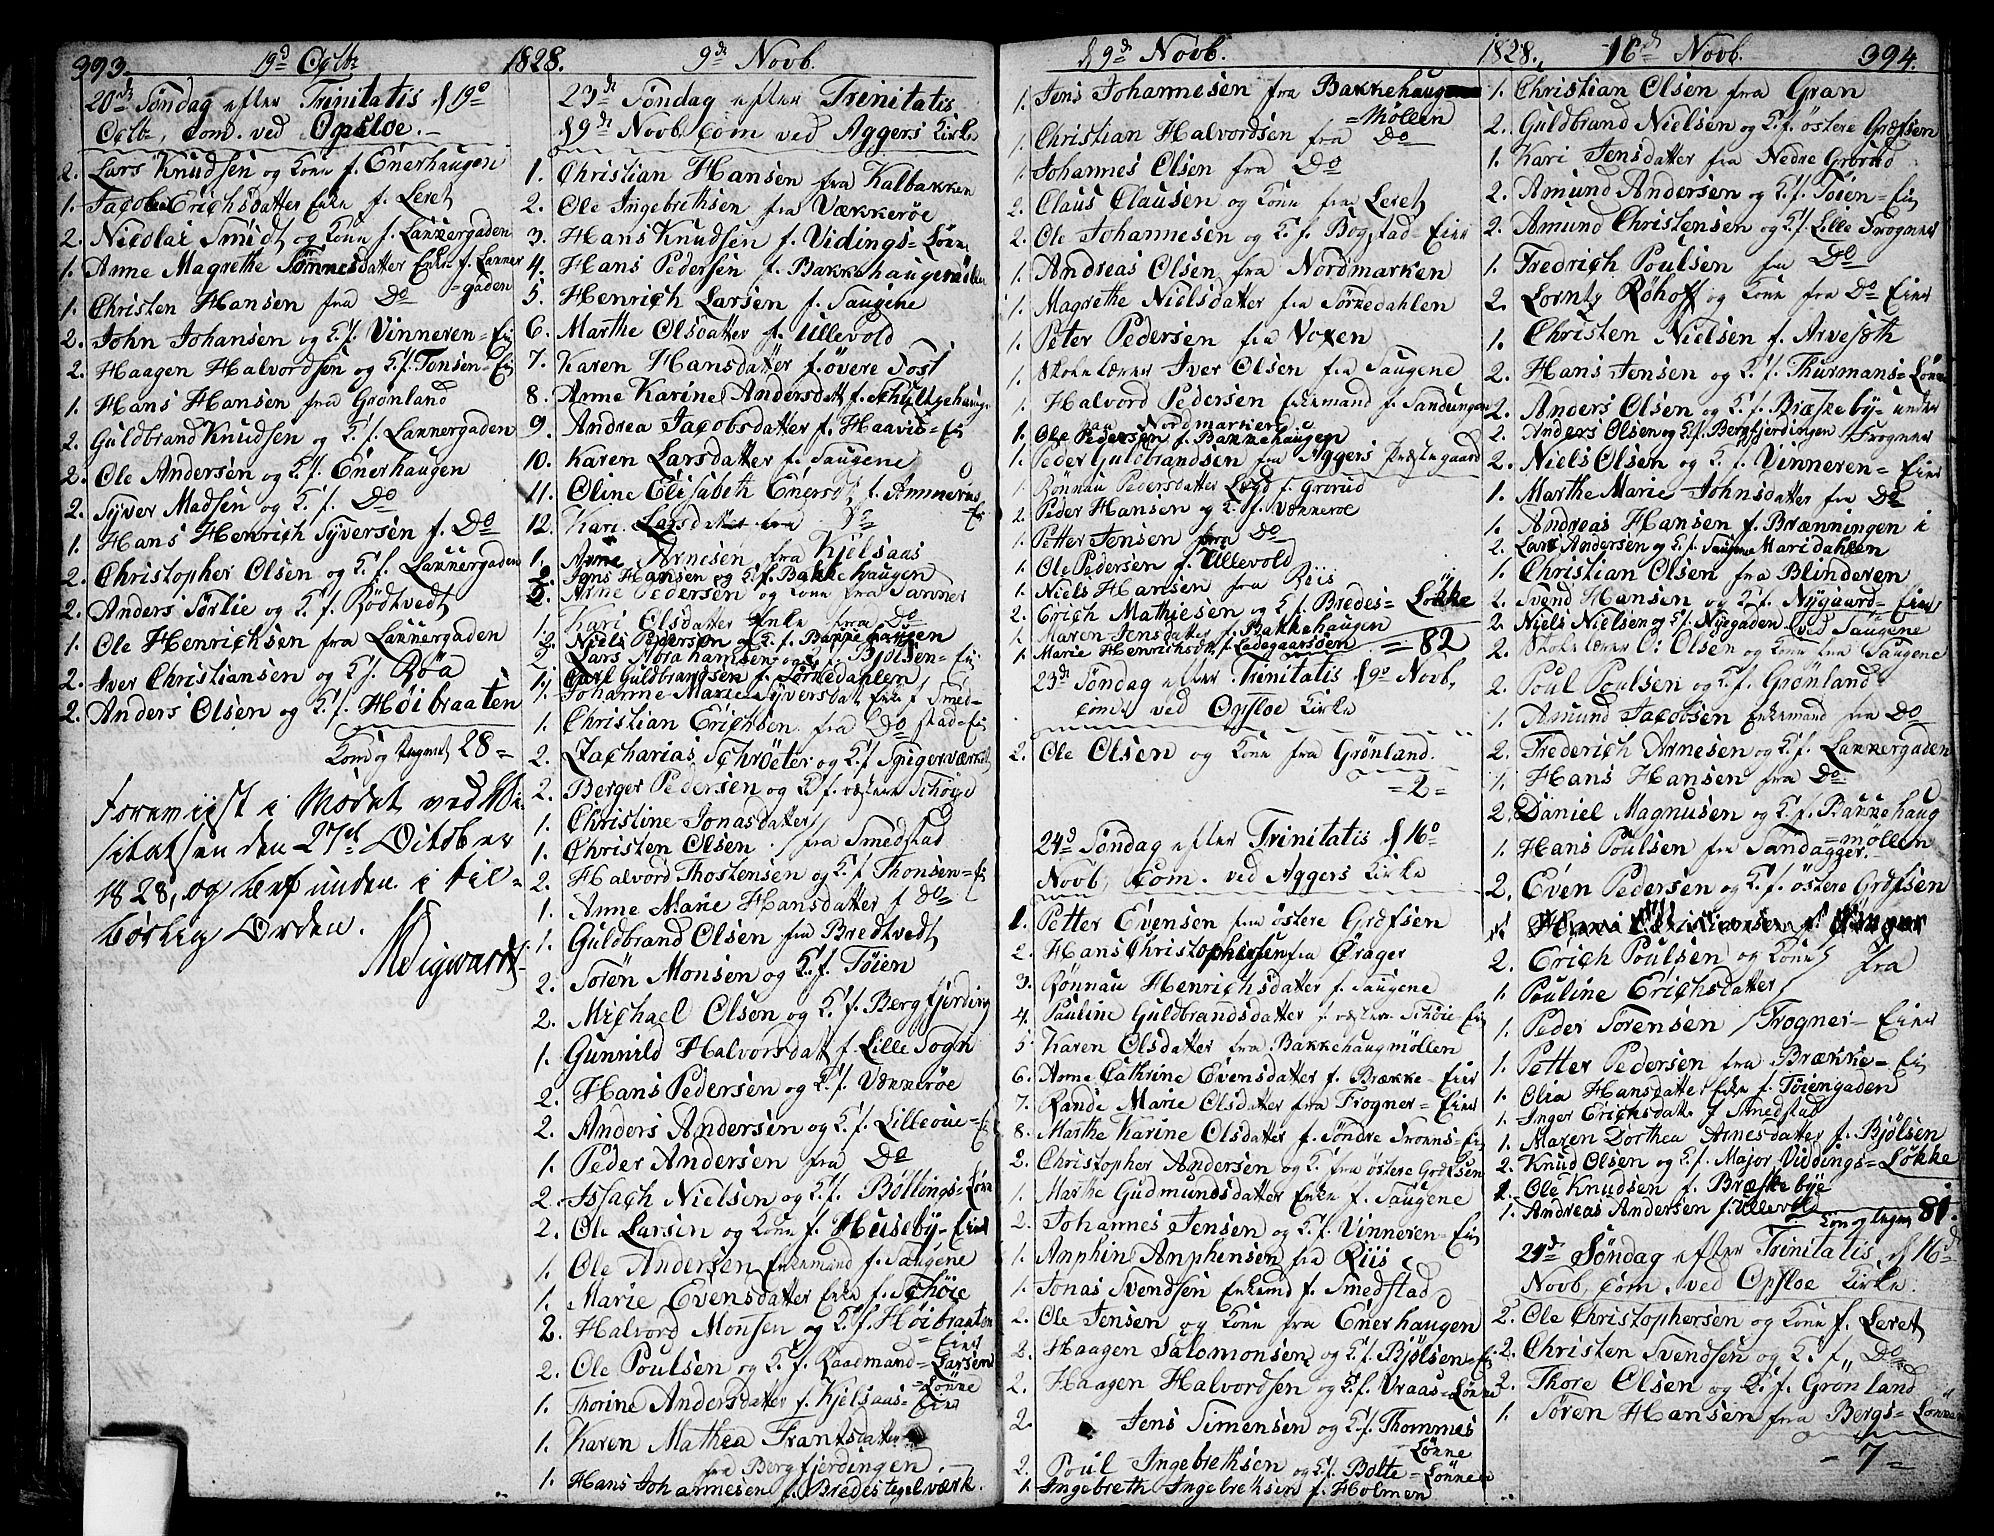 393. 19d Octbr 1828. 9de Novb.
20de Søndag efter Trinitatis d 19d
Octbr, Com. ved Opsloe.
2. Lars Knudsen og Kone f. Enerhaugen
1. Jacobea Erichsdatter Enke f. Leret
2. Nicolai Smidt og Kone f. Lakkergaden
1. Anne Magrethe Tønnesdatter Enke f. Lakker
=gaden
1. Christen Hansen fra Do
2. John Johansen og K. f. Vinneren=Eie
2. Haagen Halvordsen og K. f. Tonsen=Eie
1. Hans Hansen fra Grønland
2. Guldbrand Knudsen og K. f. Lakkergaden
2. Ole Andersen og K. f. Enerhaugen
2. Syver Madsen og K. f. Do
1. Hans Henrich Syversen f. Do
2. Christopher Olsen og K. f. Lakkergaden
2. Anders Sørlie og K. f. Rödtvedt
1. Ole Henrichsen fra Lakkergaden
2. Iver Christiansen og K. f. Röa
2. Anders Olsen og K. f. Höibraaten
28=
Foreviist i Mødet ved Vi-
sitatsen den 27de Octob er
1828, og befunden i til-
børlig Orden.
23de Søndag efter Trinitatis
d 9de Novb. Com ved Aggers Kirke
1. Christian Hansen fra Kalbakken
2. Ole Ingebrethsen fra Vækkerøe
3. Hans Knudsen f. Vidings=Løkke
4. Hans Pedersen f. Bakkehaugen
5. Henrich Larsen f. Saugene
6. Marthe Olsdatter f. Ullevold
7. Karen Hansdatter f. øvre Fost
8. Anne Karine Andersdatt f. Schultzehaugen
9. Andrea Jacobsdatter f. Haavid=Ei
10. Karen Larsdatter f. Saugene
11. Oline Elisabeth Enersd. f. Ammerud=
Ei
12. Kari Larsdatter fra Do
1. Arne Arnesen fra Kjelsaas
2. Jens Hansen og K. f. Bakkehaugen
2. Arne Pedersen og Kone fra
1. Kari Olsdatter Enke fra Do
2. Niels Pedersen og K. f. Bakkehaugen
2. Lars Abrahamsen og K. f. Bjølsen=Eie
1. Carl Guldbrandsen f. Sørkedahlen
1. Johanne Marie Syversdat Enke f. Smed-
1. Christian Erichsen fra Do stad=Ei
2. Zacharias Schröeter og K. f. Spigerværket
2. Berger Pedersen og K. f. vestere Schöie
1. Christine Jonasdatter
1. Christen Olsen fra Smedstad
2. Halvord Thostensen og K. f. Thonsen=Ei
1. Anne Marie Hansdatter f. Do
1. Guldbrand Olsen fra Bredtvedt
2. Sorön Monsen og K. f. Töien
2. Michael Olsen og K. f. Bergfjerding
1. Gunnild Halvorsdat f. Lille Sogn
2. Hans Pedersen og K. f. Vækkerøe
2. Anders Andersen og K. f. Lilleøie=Ei
1. Peder Andersen fra Do
2. Issach Nielsen og K. f. Böllings=Løkke
2. Ole Larsen og Kone f. Huseby=Eie
1. Ole Andersen Enkemand f. Saugene
1. Marie Evensdatter Enke f. Schöie
2. Halvord Monsen og K. f. Höibraaten
=Eie
2. Ole Poulsen og K. f. Raadmand Larsens
=Løkke
1. Thorine Andersdatter f. Kjelsaas=Eie
1. Karen Mathea Frantsdatter
fra Bergfjerdingen
1. Hans Johannesen f. Bredes tegelværk.
d 9de Novb. 1828. 16de Novb. 394.
1. Jens Johannesen fra Bakkehaugen
=Møllen
1. Christian Halvordsen fra Do
1. Johannes Olsen fra Do
2. Claus Clausen og Kone fra Leret
2. Ole Johannesen og K. f. Bogstad=Eier
1. Andreas Olsen fra Nordmarken
1. Magrethe Nielsdatter fra Sørkedahlen
1. Peter Pedersen fra Voxen
1. Skolelærer Iver Olsen fra Saugene
1. Halvord Pedersen Enkemand f. Sandungen
paa Nordmarken
1. Ole Pedersen f. Bakkehaugen
1. Peder Guldbrandsen fra Aggers Præstegaard
1. Rönnau Pedersdatter Lægd f. Grorud
2. Peder Hansen og K. f. Vækkerøe
1. Petter Jensen fra Do
1. Ole Pedersen f. Ullevold
1. Niels Hansen fra Riis
2. Erich Mathiesen og K. f. Bredes=Løkke
1. Maren Jensdatter f. Bakkehaugen
1. Marie Henrichsd. f. Ladegaarsöen =82
23de Søndag efter Trinitatis d 9de Novb,
Com. ved Opsloe Kirke
2. Ole Olsen og Kone fra Grønland.
=2=
24de Søndag efter Trinitatis d 16de
Novb, Com. ved Aggers Kirke
1. Petter Evensen fra østere Græfsen
2. Hans Christophersen fra Orager
3. Rönnau Henrichsdatter f. Saugene
4. Pauline Guldbrandsdatter f. vestere Schöie=Ei
5. Karen Olsdatter fra Bakkehaugmöllen
6. Anne Cathrine Evensdatter f. Brække=Eier
7. Rande Marie Olsdatter fra Frogner=Eier
8. Marthe Karine Olsdatter f. Søndre
2. Christopher Andersen og K. fra østere Græfsen
1. Marthe Gudmundsdatter Enke f. Saugene
2. Johannes Jensen og K. f. Vinneren=Eie
1. Amphin Amphensen fra Riis
1. Jonas Svendsen Enkemd f. Smedstad
2. Ole Jensen og Kone fra Enerhaugen
2. Haagen Salomonsen og K. f. Bjølsen=Ei
2. Haagen Halvordsen og K. f. Vraas=Løkke
2. Jens Simensen og K. f. Thommes
=Løkke
2. Poul Ingebrethsen og K. f. Bolte=Løkken
1. Ingebreth Ingebrethsen f. Holmen
1. Christian Olsen fra Gran
2. Guldbrand Nielsen og K. f. østere Græfsen
1. Kari Jensdatter fra Nedre Grorud
2. Amund Andersen og K. f. Töien=Ei
2. Amund Christensen og K. f. Lille Frogner
1. Fredrich Poulsen fra Do
2. Lorntz Røhoff og Kone fra Do Eier
1. Christen Nielsen f. Arvesæth
2. Hans Jensen og K. f. Thurmans=Løkke
2. Anders Olsen og K. f. Bræskeby= under
2. Anders Olsen og K. f. Bergfjerdingen Frogner
2. Niels Olsen og K. f. Vinneren=Eier
1. Marthe Marie Johnsdatter fra Do
1. Andreas Hansen f. Brænningen i
2. Lars Andersen og K. f. Saugene Maridahlen
1. Christian Olsen fra Blinderen
2. Svend Hansen og K. f. Nygaard=Eier
2. Niels Nielsen og K. f. Nyegaden ved Saugene
2. Skolelærer O: Olsen og Kone fra Saugene
2. Poul Poulsen og K. f. Grønland
1. Amund Jacobsen Enkemand fra Do
2. Frederich Arnesen og K. f. Lakkergaden
1. Hans Hansen fra Do
2. Daniel Magnusen og K. f. Bakkehaug
=møllen
1. Hans Poulsen fra Sandagger.
2. Even Pedersen og K. f. østere Græfsen
2. Erich Poulsen og Kone fra
1. Pouline Erichsdatter
1. Peder Sørensen Frogner=Eier
1. Petter Pedersen fra Brække=Ei
1. Olia Hansdatter Enke f. Töiengaden
1. Inger Erichsdatt f. Smedstad
1. Maren Dorthea Arnesdatter f. Bjølsen
2. Knud Olsen og K. f. Major Viddings=Løkke
1. Ole Knudsen f. Bræskebye
1. Andreas Andersen f. Ullevold
81.
24de Søndag efter Trinitatis d 16de
Novb, Com. ved Opsloe Kirke.
2. Ole Christophersen og Kone f. Leret
2. Christen Svendsen og K. f. Do
2. Thore Olsen og K. f. Grønland
1. Søren Hansen fra Bergs=Løkke
-7=